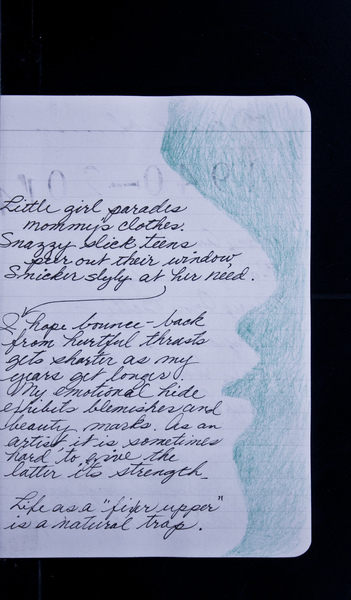 Little girl parades
mommy's clothes.
Snazzy slick teens
peer out their window,
Snicker slyly at her need.
I hope bounce-back
from hurtful thrusts
gets shorter as my
years get longer.
My emotional hide
exhibits blemishes and
beauty marks. As an
artist it is sometimes
hard to give the
latter its strength.
Life as a "fixer upper"
is a natural trap.